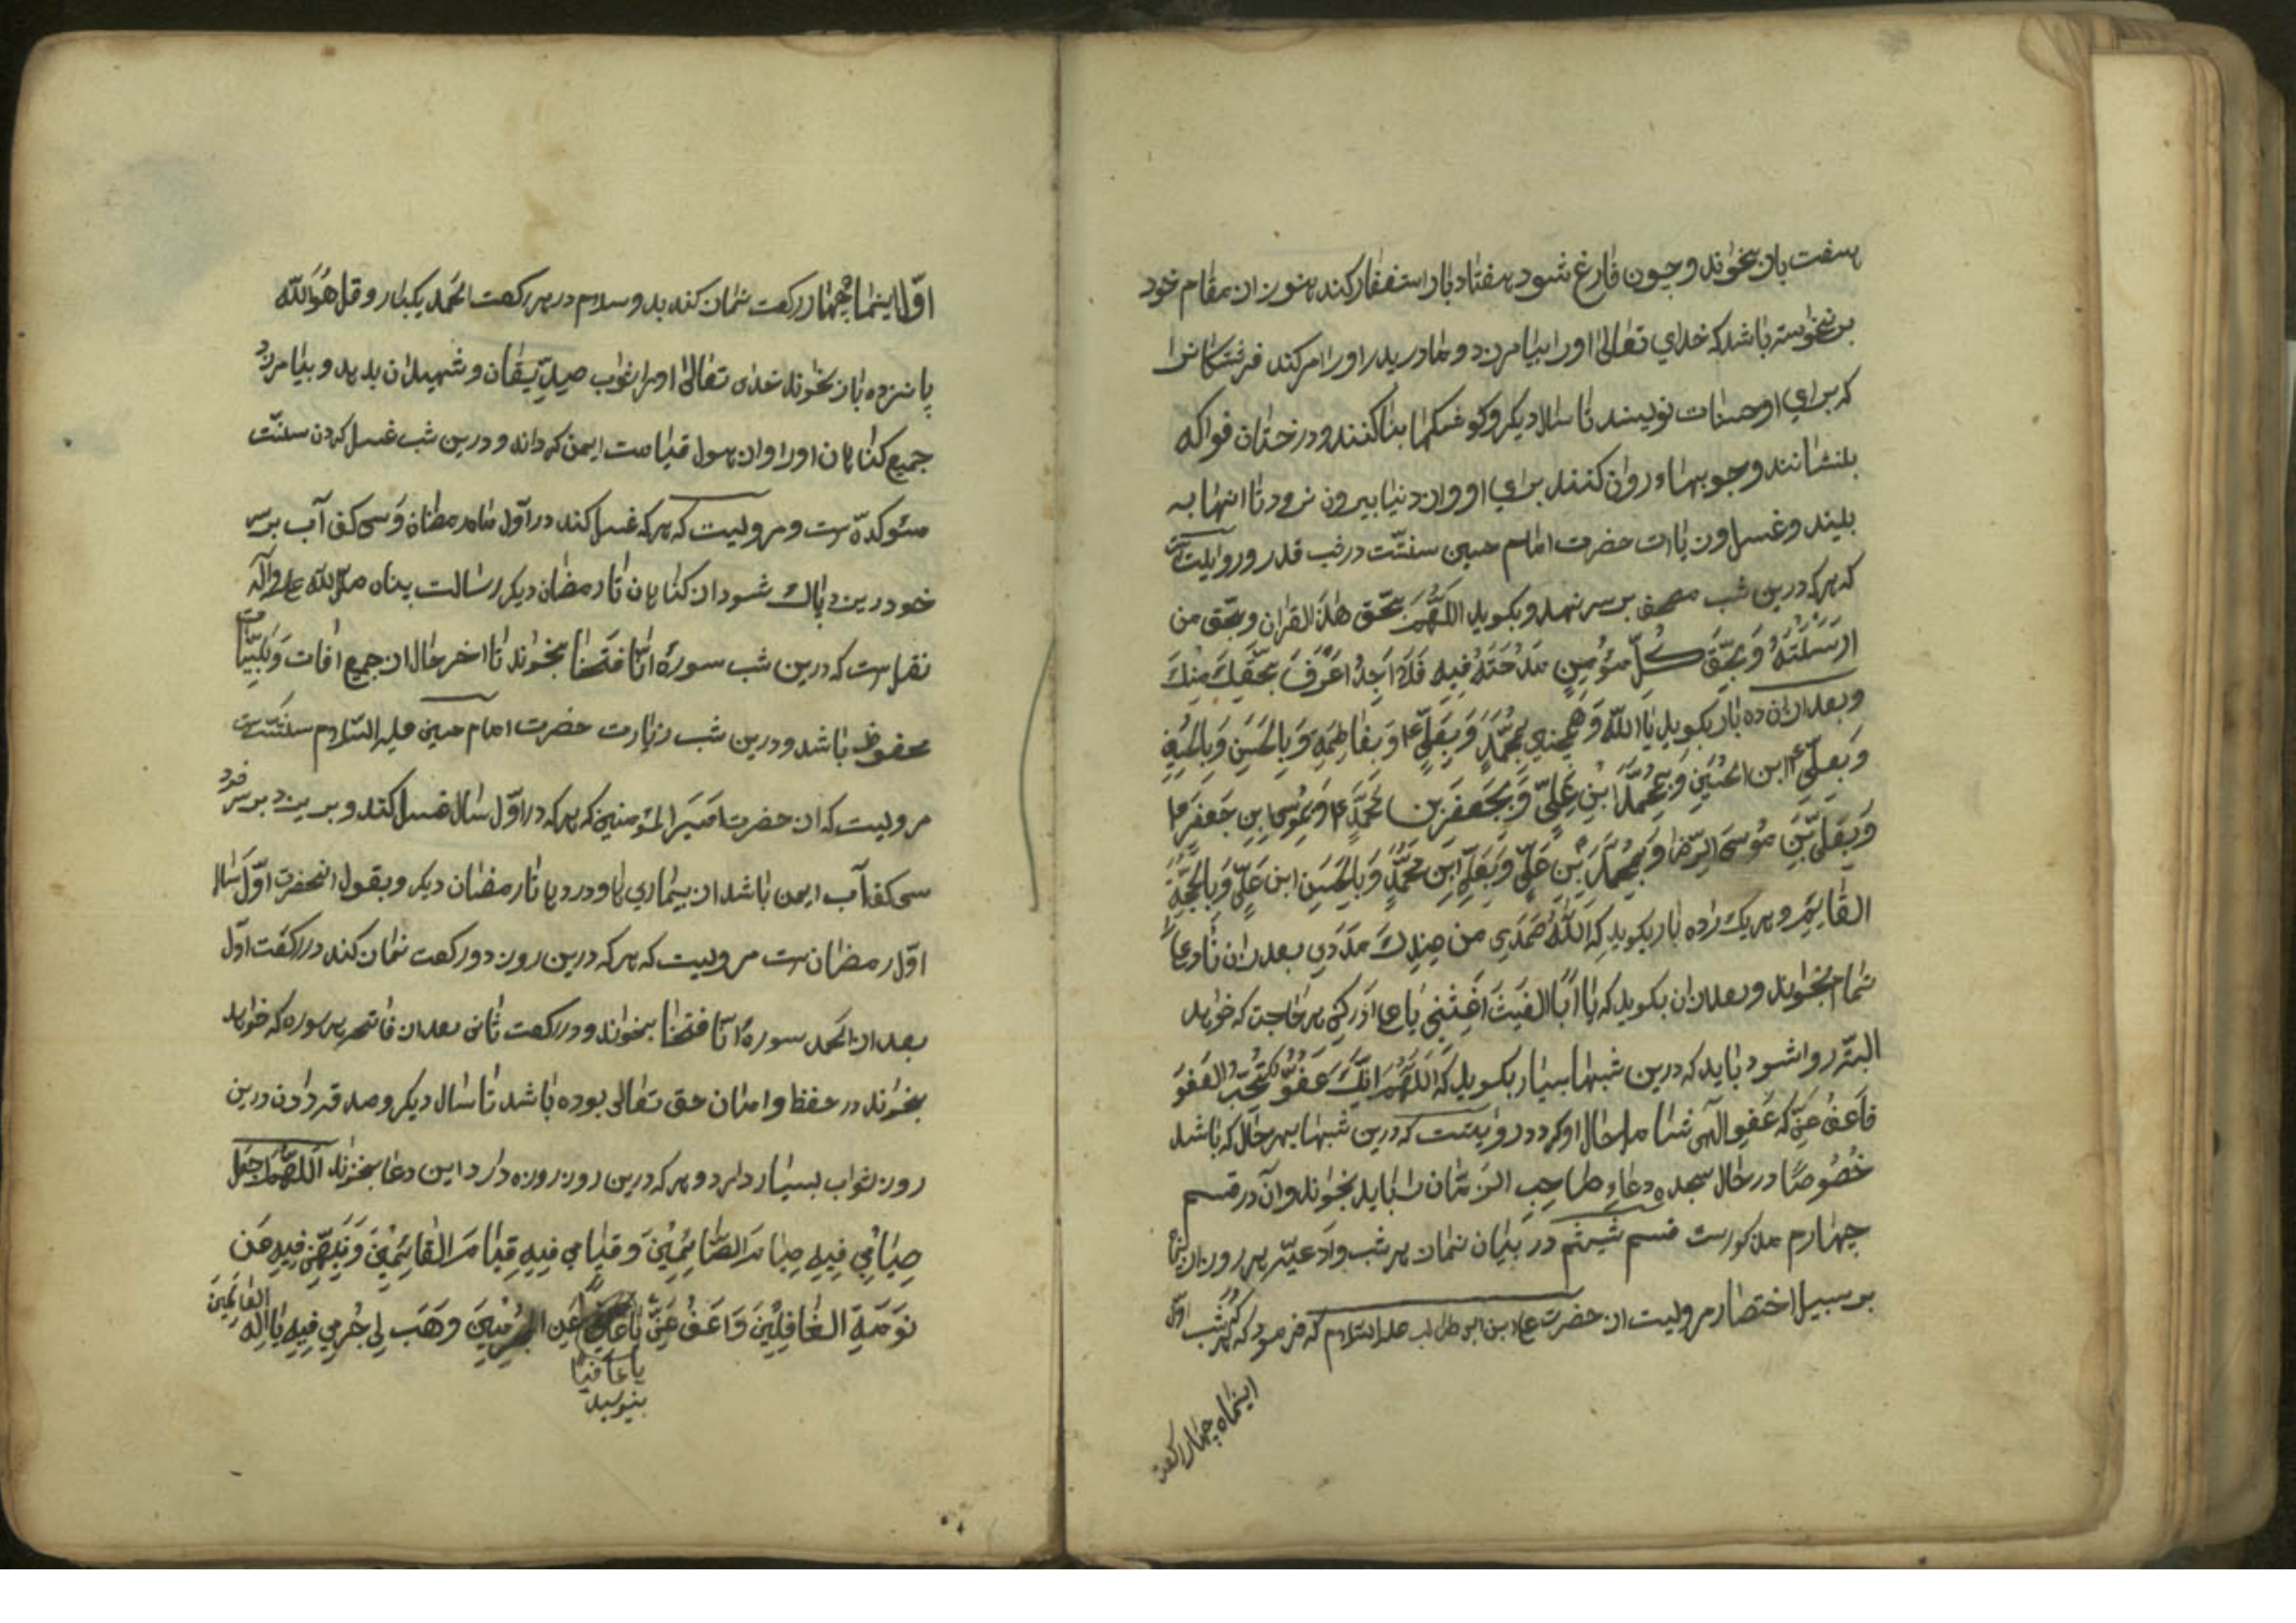 هفت بار بخواند و چون فارغ شود هفتاد بار استغفار کند هنوز از مقام خود
برنخواسته باشد که خدای تعالی او را بیامرزد و مادر پدر او را امر کند فرشتگانرا
که برای او حسنات نویسند تا سال دیگر و کوشکها بنا کنند و درختان فواکه
بنشانند و جویها روان کنند برای او و از دنیا بیرون نرود تا اینها به
بیند و غسل و زیارت حضرت امام حسین سنّت در شب قدر و روایتست
که هر که درین شب مصحف بر سر نهد و بگوید اللّهُمّ بحَق هذا القران و بحَق من
ارسَلتَهُ وَ بحَقّ کُلّ مؤمِنٍ مَدَحتَهُ فیهِ فَلا اَجِدُ اَعرَفَ بحَقّکَ مِنکَ
و بعد ازان ده بار بگوید یا اللّه وَ همچنین بمُحَمّدٍ وَ بِعَلیٍّ وَ بِفاطِمَهِ وَ بِالحَسَنِ وَ بِالحُسَینِ
وَ بِعَلیّ ابن الحُسَینِ وَ بمُحَمّدِ ابنِ عَلیٍّ وَ بجَعفَرِ بن مُحَمّدٍ وَ بمُوسَی بنِ جَعفَرٍ
وَ بِعَلیّ بنِ مُوسَی الرّضا وَ بمُحَمّدِ بنِ عَلیٍّ وَ بِعَلیّ ابنِ مُحَمّدٍ وَ بِالحَسَنِ ابن عَلیٍّ وَ بِالحُجّهِ
القایِمِ و هر یک را ده بار بگوید که اَللّهُ صَمَدی من عِندِکَ مَدَدی بعد ازان
تمام بخواند و بعد ازان بگوید که یا اَبَا الغَیثَ اَغِثنی یا علی اَدرِکنی هر حاجت که خواهد
البتّه روا شود باید که درین شبها بسیار بگوید که اَللّهُمّ اِنّکَ عَفُوٌّ تُحِبّ العَفوَ
فَاعفُ عَنّی که عَفو الهی شامل حال او گردد و روایتست که درین شبها بهر حال که باشد
خُصُوصًا در حال سجده دعاءِ صاحِبِ الزّمان باید بخواند و آن در قسم
چهارم مذکورست قسم ششم در بَیان نماز هر شب و اَدعیّه هر روز
بر سبیل اختصار مرویست از حضرت علی بن ابی طالب علیه السّلام که فرمود که هر که شب اوّل
اینماه چهار رکعت
اوّل اینماه چهار رکعت نماز کند بدو سلام در هر رکعت الحَمد یکبار و قل هُوَ اللّه
پانزده بار بخواند خدای تعالی او را ثواب صدّیقان و شهیدان بدهد و بیامرزد
جمیع گناهان او را و از هول قیامت ایمن گرداند و درین شب غسل کردن سنّت
مئوکدّه است و مرویست که هر که غسل کند در اوّل ماه رمضان وَ سی کف آب بر سر
خود ریزد پاک شود از گناهان تا رمضان دیگر رسالت پناه صلّی اللّه علیه و آله
نقل است که درین شب سورهٔ انّا فَتَحنا بخواند تا اخر حال از جمیع افات وَ بَلِیّات
محفوظ باشد و درین شب زیارت حضرت امام حسین علیه السّلام سنّتست
مرویست که از حضرت اَمیَر المُؤمنین که هر که در اوّل سال غسل کند و بریزد بر سر خود
سی کف آب ایمن باشد از بیماری ها و درد ها تا رمضان دیگر و بقول انحضرت اوّل سال
اوّل رمضانست مرویست که هر که درین روز دو رکعت نماز کند در رکعت اوّل
بعد از الحَمد سورهٔ انّا فتحنا بخواند و در رکعت ثانی بعد از فاتحه هر سوره که خواهد
بخواند در حفظ و امان حق تعالی بوده باشد تا سال دیگر و صدقه دادن درین
روز ثواب بسیار دارد و هر که درین روز روزه دارد این دعا بخواند اَللّهُمّ اجعَل
صِیامی فِیهِ صِیامَ الصّائِمِینَ وَ قیامی فِیهِ قِیامَ القائِمِینَ وَ نَبّهنی فِیهِ عَن
نَومَهِ الغافِلِینَ وَ اعفُ عَنّی یا عافیًا عَنِ المُجرِمِینَ وَ هَب لی جُرمی فِیهِ یا اِلهَ العالَمِینَ
یا عافیًا
بنویسد